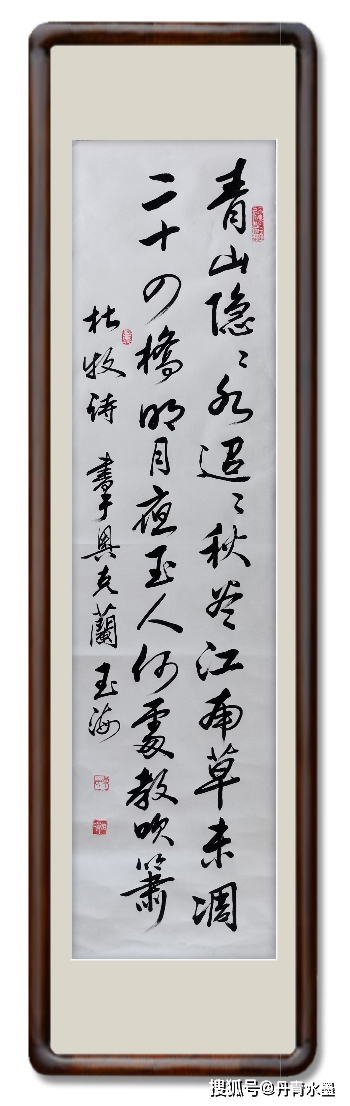 青山隐〻水迢〻秋尽江南草未凋
二十四橋明月夜玉人何處教吹簫
杜牧诗 書于奥克蘭 玉海
搜狐号@丹青水墨